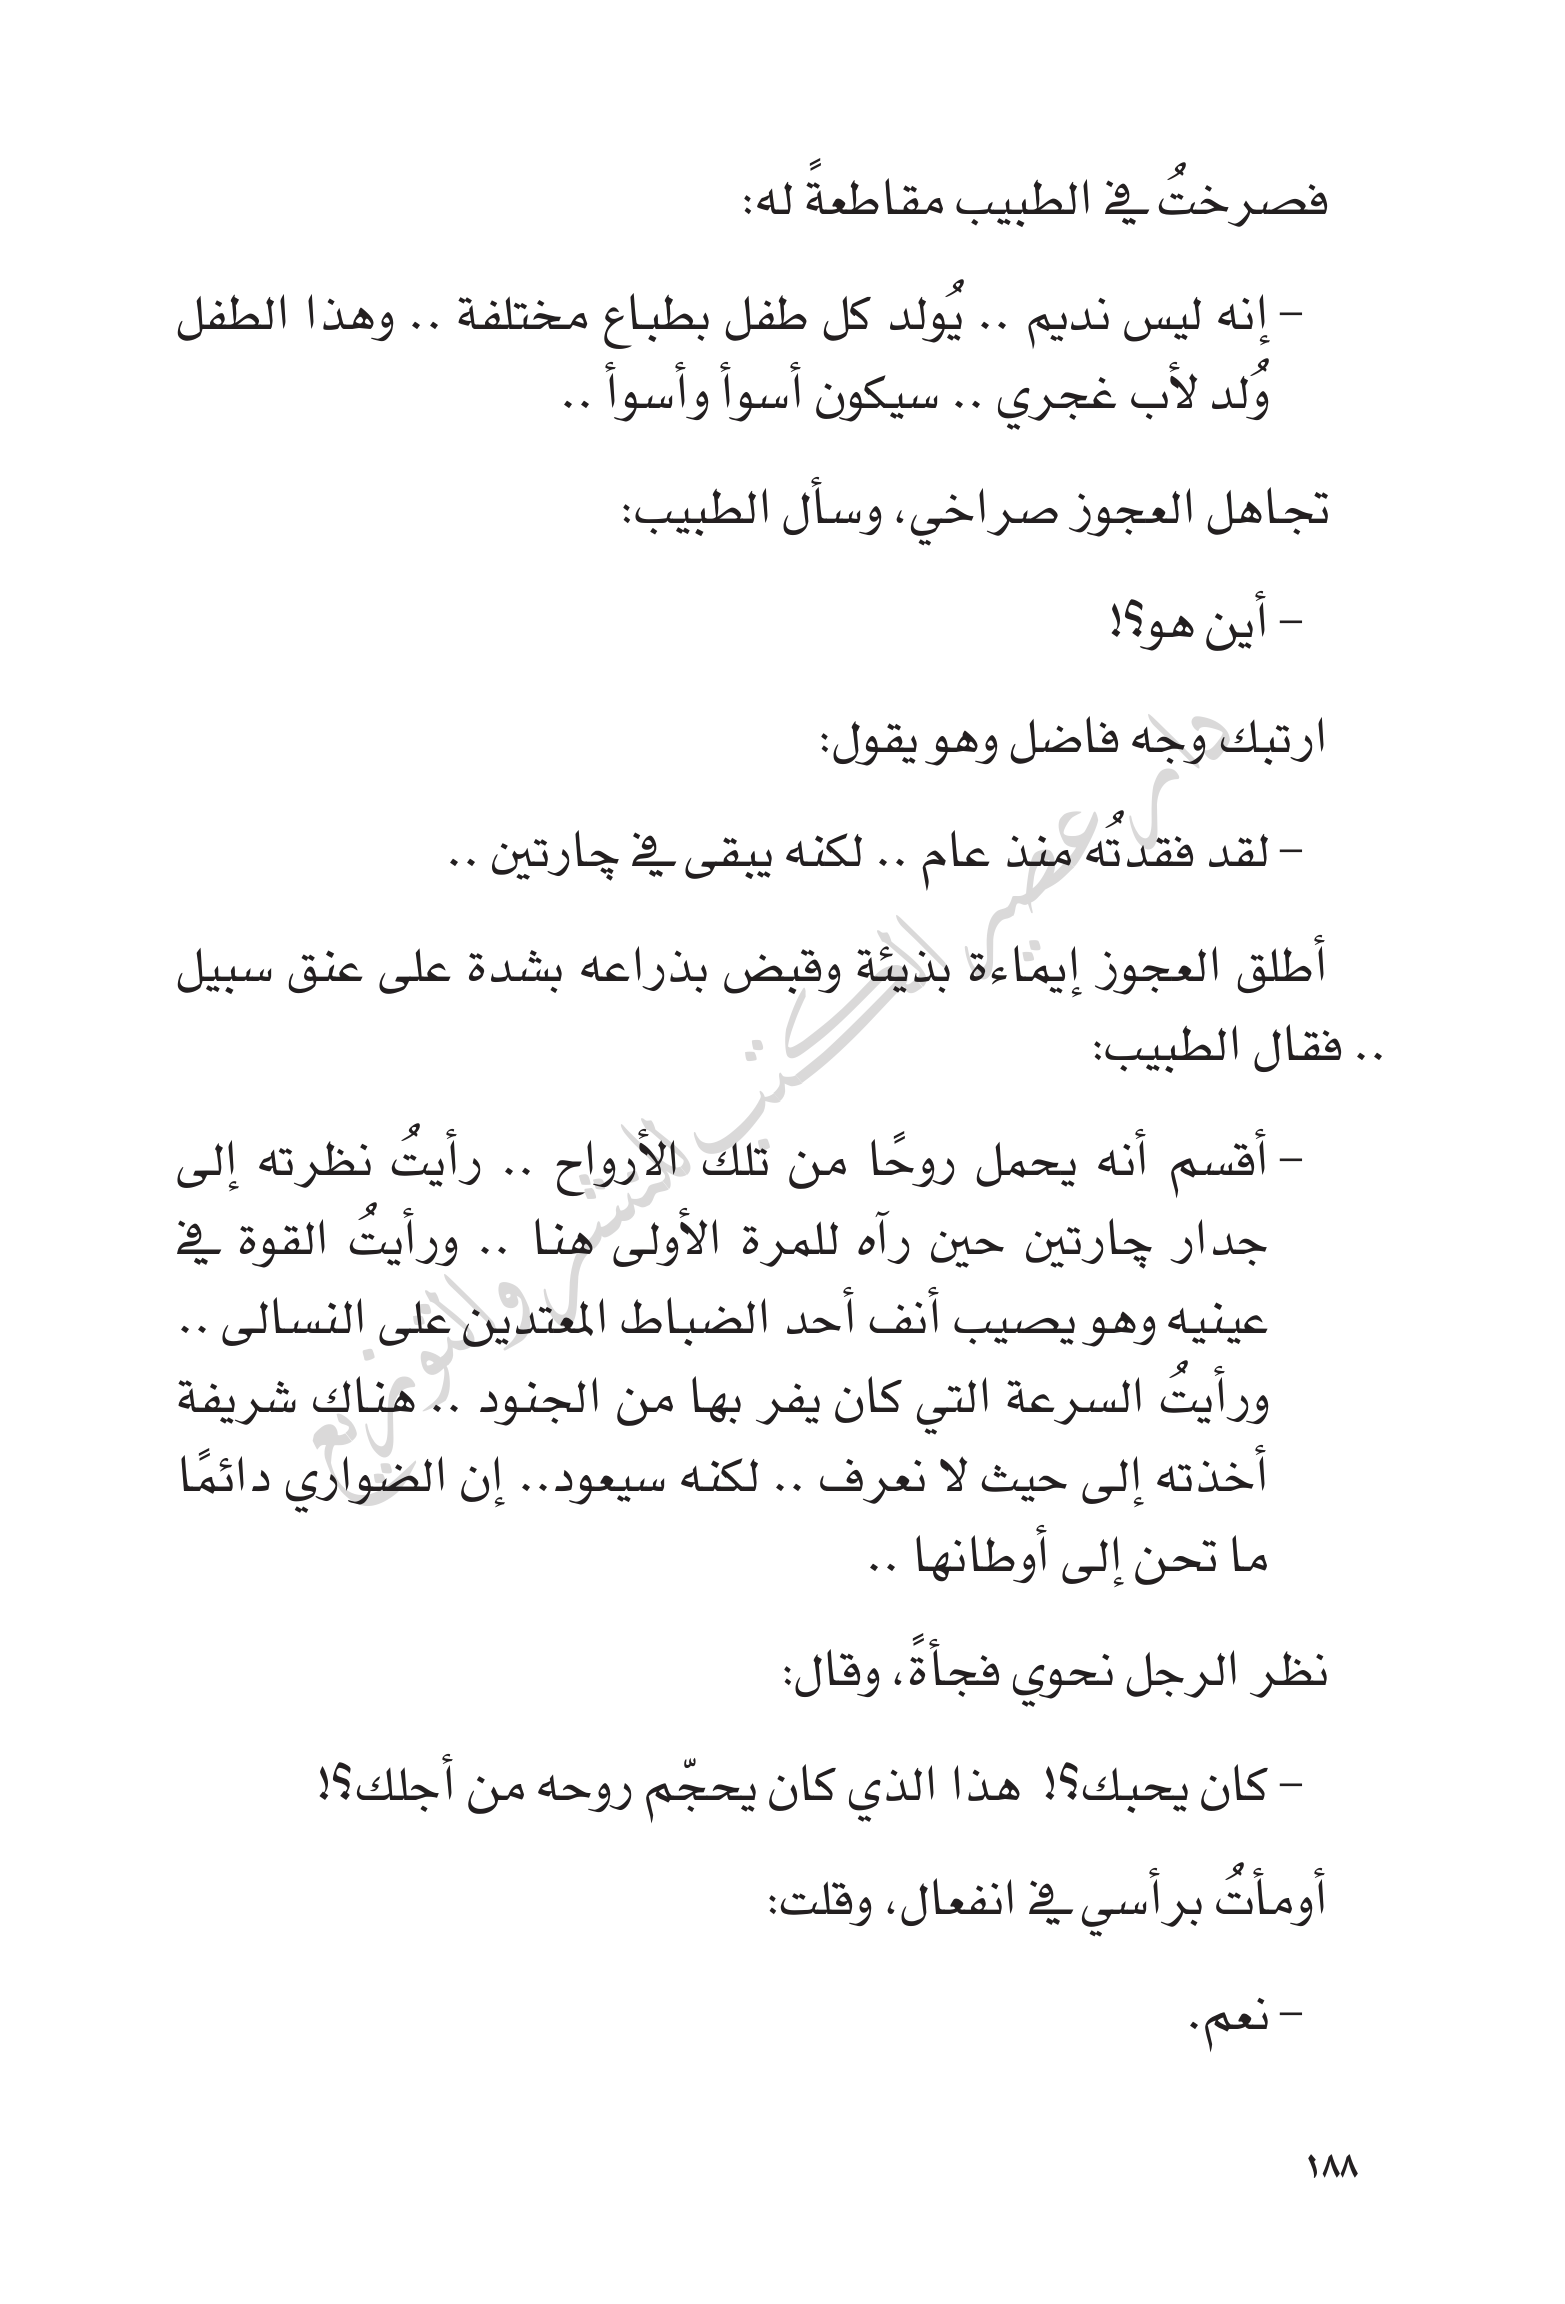 فصرختُ في الطبيب مقاطعةً له:
– إنه ليس نديم .. يُولد كل طفل بطباع مختلفة .. وهذا الطفل
وُلد لأب غجري .. سيكون أسوأ وأسوأ ..
تجاهل العجوز صراخي، وسأل الطبيب:
– أين هو؟!
ارتبك وجه فاضل وهو يقول:
– لقد فقدتُه منذ عام .. لكنه يبقى في چارتين ..
أطلق العجوز إيماءة بذيئة وقبض بذراعه بشدة على عنق سبيل
.. فقال الطبيب:
– أقسم أنه يحمل روحًا من تلك الأرواح .. رأيتُ نظرته إلى
جدار چارتين حين رآه للمرة الأولى هنا .. ورأيتُ القوة في
عينيه وهو يصيب أنف أحد الضباط المعتدين على النسالى ..
ورأيتُ السرعة التي كان يفر بها من الجنود .. هناك شريفة
أخذته إلى حيث لا نعرف .. لكنه سيعود.. إن الضواري دائمًا
ما تحن إلى أوطانها ..
نظر الرجل نحوي فجأةً، وقال:
– كان يحبك؟! هذا الذي كان يحجّم روحه من أجلك؟!
أومأتُ برأسي في انفعال، وقلت:
– نعم.
١٨٨
دار عصير الكتب للنشر والتوزيع